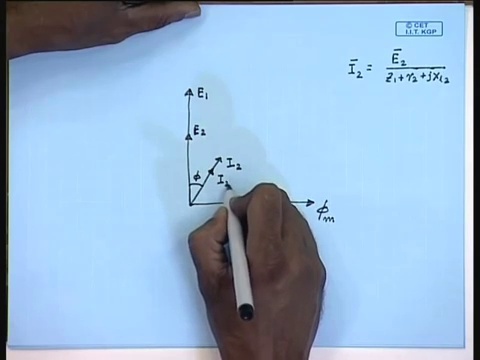 © CET
I.I.T. KGP
Ī₂ = Ē₂ / Z₁+r₂+jx₁₂
E₁
E₂
ϕ
I₂
I₂
ϕₘ